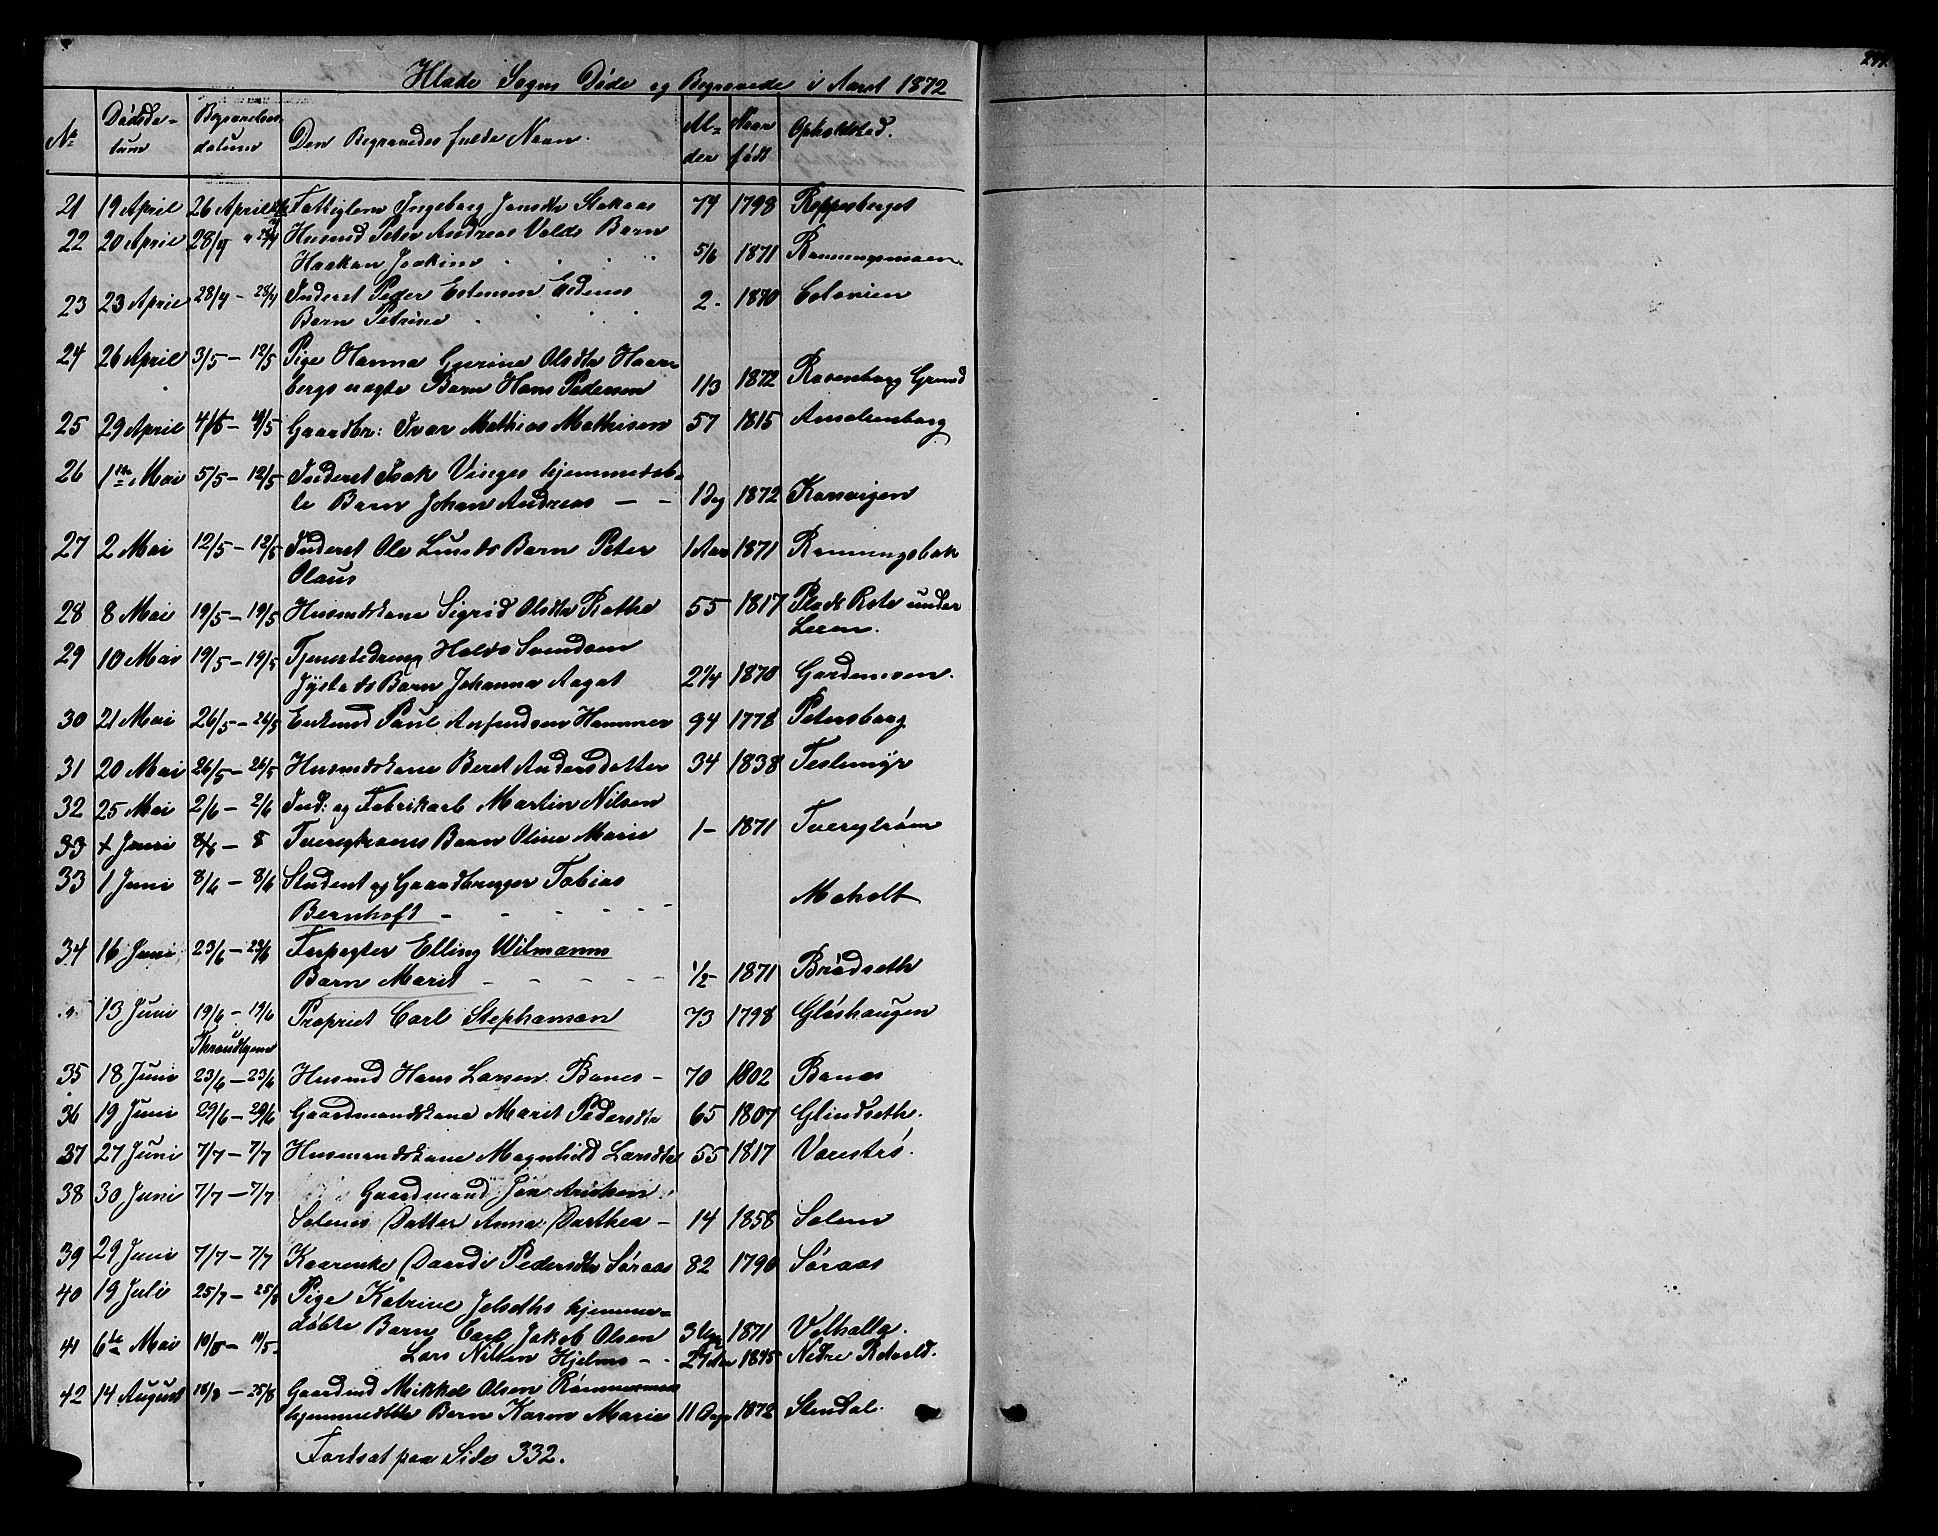 Hlade Sogns Døde og Begravede i Aaret 1872
No Dødsdatum Begravelsesdatum Den Begravedes fulde Navn. Alder Naar født Opholdssted.
21 19 April 26 April Fattiglem Ingeborg Jonsdtr Stokaas 74 1798 Reppesberget
22 20 April 28/4 " 28/4 Husmd Peter Andreas Volds Barn
Haakan Joakim 5/6 1871 Ranningsmoen.
23 23 April 28/4 - 28/4 Inderst Peder Estensen Eidenes 2 - 1870
Barn Petrine
24 26 April 3/5 - 12/5 Pige Hanna Gjerine Olsdtr Haar-
bergs uægte Barn Hans Pedersen 1/3 1872 Rosenborg Grund
25 29 April 4/5 - 4/5 Gaardbr: Ivar Mathias Mathisen 57 1815
26 1te Mai 5/5 - 12/5 Inderst Isak Vinges hjemmedøb-
te Barn Johan Andreas — - 1 Dg 1872 Korsvigen
27 2 Mai 12/5 - 12/5 Inderst Ole Lunds Barn Peter 1 Aar 1871 Ranningsbak
Olaus
28 8 Mai 19/5 - 19/5 Husmdskone Sigrid Olsdtr Rothe 55 1817 Plads Rote under
Leren.
29 10 Mai 19/5 - 19/5 Tjenestedreng Halvo Svendsen
Barn Johanna Aagot 2 1/4 1870 Gardemoen.
30 21 Mai 26/5 - 26/5 Enkemd Paul Arfindsen Hammer 94 1778 Petersborg
31 20 Mai 26/5 - 26/5 Husmdskone Beret Andersdatter 34 1838 Teslimyr
32 25 Mai 2/6 - 2/6 Ind: og Fabrikarb Martin Nilsen
33 1 Juni 8/6 - 8 Barn Oline Marie 1 - 1871
33 1 Juni 8/6 - 8/6 Student og Gaardbruger Tobias
Bernhoft - - - - - - Moholt
34 16 Juni 23/6 - 23/6 Forpagter Elling Wilmanns
Barn Marit - - - - - 1/2 - 1871 Brødseth
" 13 Juni 19/6 - 19/6 Propriet Carl Stephanson 73 1798 Gløshaugen
Throndhjem
35 18 Juni 23/6 - 23/6 Husmd Hans Larsen Banes - 70 1802 Banes
36 19 Juni 29/6 - 29/6 Gaardmandskone Marit Pedersdtr 65 1807 Glindseth.
37 27 Juni 7/7 - 7/7 Husmandskone Magnhild Larsdtr 55 1817
38 30 Juni 7/7 - 7/7 Gaardmand Jon
Solems Datter Anna Dorthea - 14 1858 Solem
39 29 Juni 7/7 - 7/7 Kaarenke Pedersdtr Søraas 82 1790 Søraas
40 19 Juli 25/7 - 25/8 Pige Katrine Jelseths hjemme=
døbte Barn Carl Jakob Olsen 3 1871
41 6te Mai 19/5 - 19/5. Lars Nilsen Hjelms - - 27 Aar 1845 Nedre Rotvold.
42 14 August 18/8 - 25/8 Gaardmd Mikkel Olsen
hjemmedøbte Barn Karen Marie 11 Dage 1872 Stendal.
Fortsat paa Side 332.